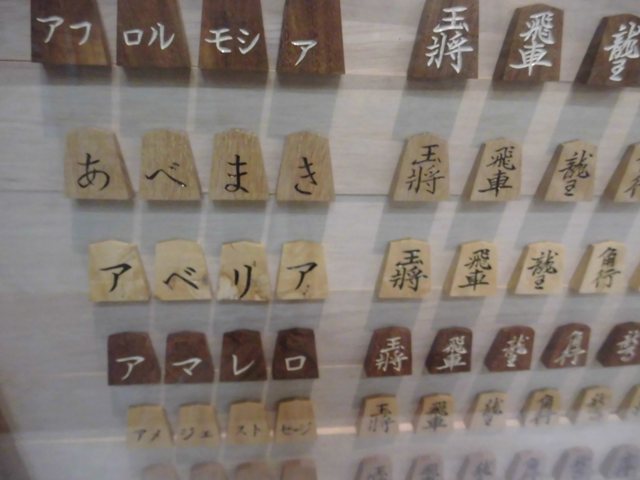 アフ ロル モシ ア 玉將 飛車 龍王
あ べ ま き 玉將 飛車 龍王
ア ベ リ ア 玉將 飛車 龍王 角行
ア マ レ ロ 玉將 飛車 龍王 角行
アメ ジェ スト セージ 玉將 飛車 龍王 角行